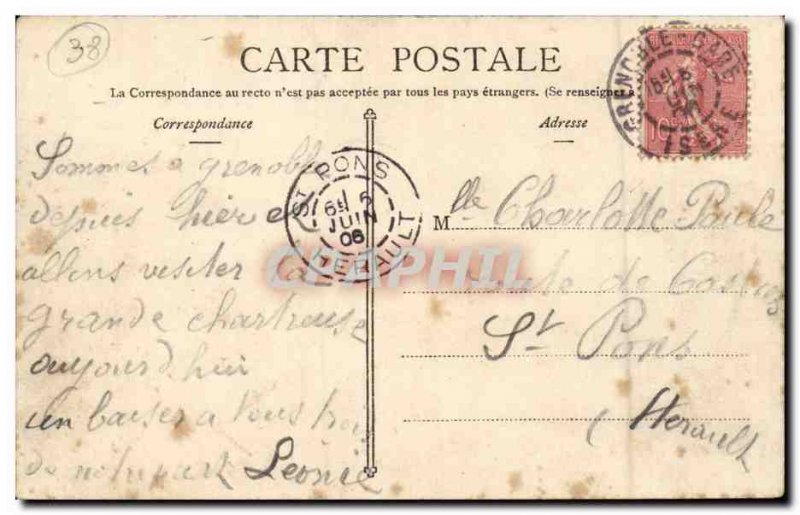 38
CARTE POSTALE
La Correspondance au recto n'est pas acceptée par tous les pays étrangers. (Se renseigner à
Correspondance
Adresse
GRENOBLE-GARE
ISERE
10
ST PONS
6
JUIN
06
HERAULT
CARPHIL
Sommes a grenoble
depuis hier e
allons visiter la
grande chartreuse
aujourd'hui
un baiser a tous trois
de notre part Leonie
Mlle Charlotte Paule
Route de Castres
St Pons
(Herault